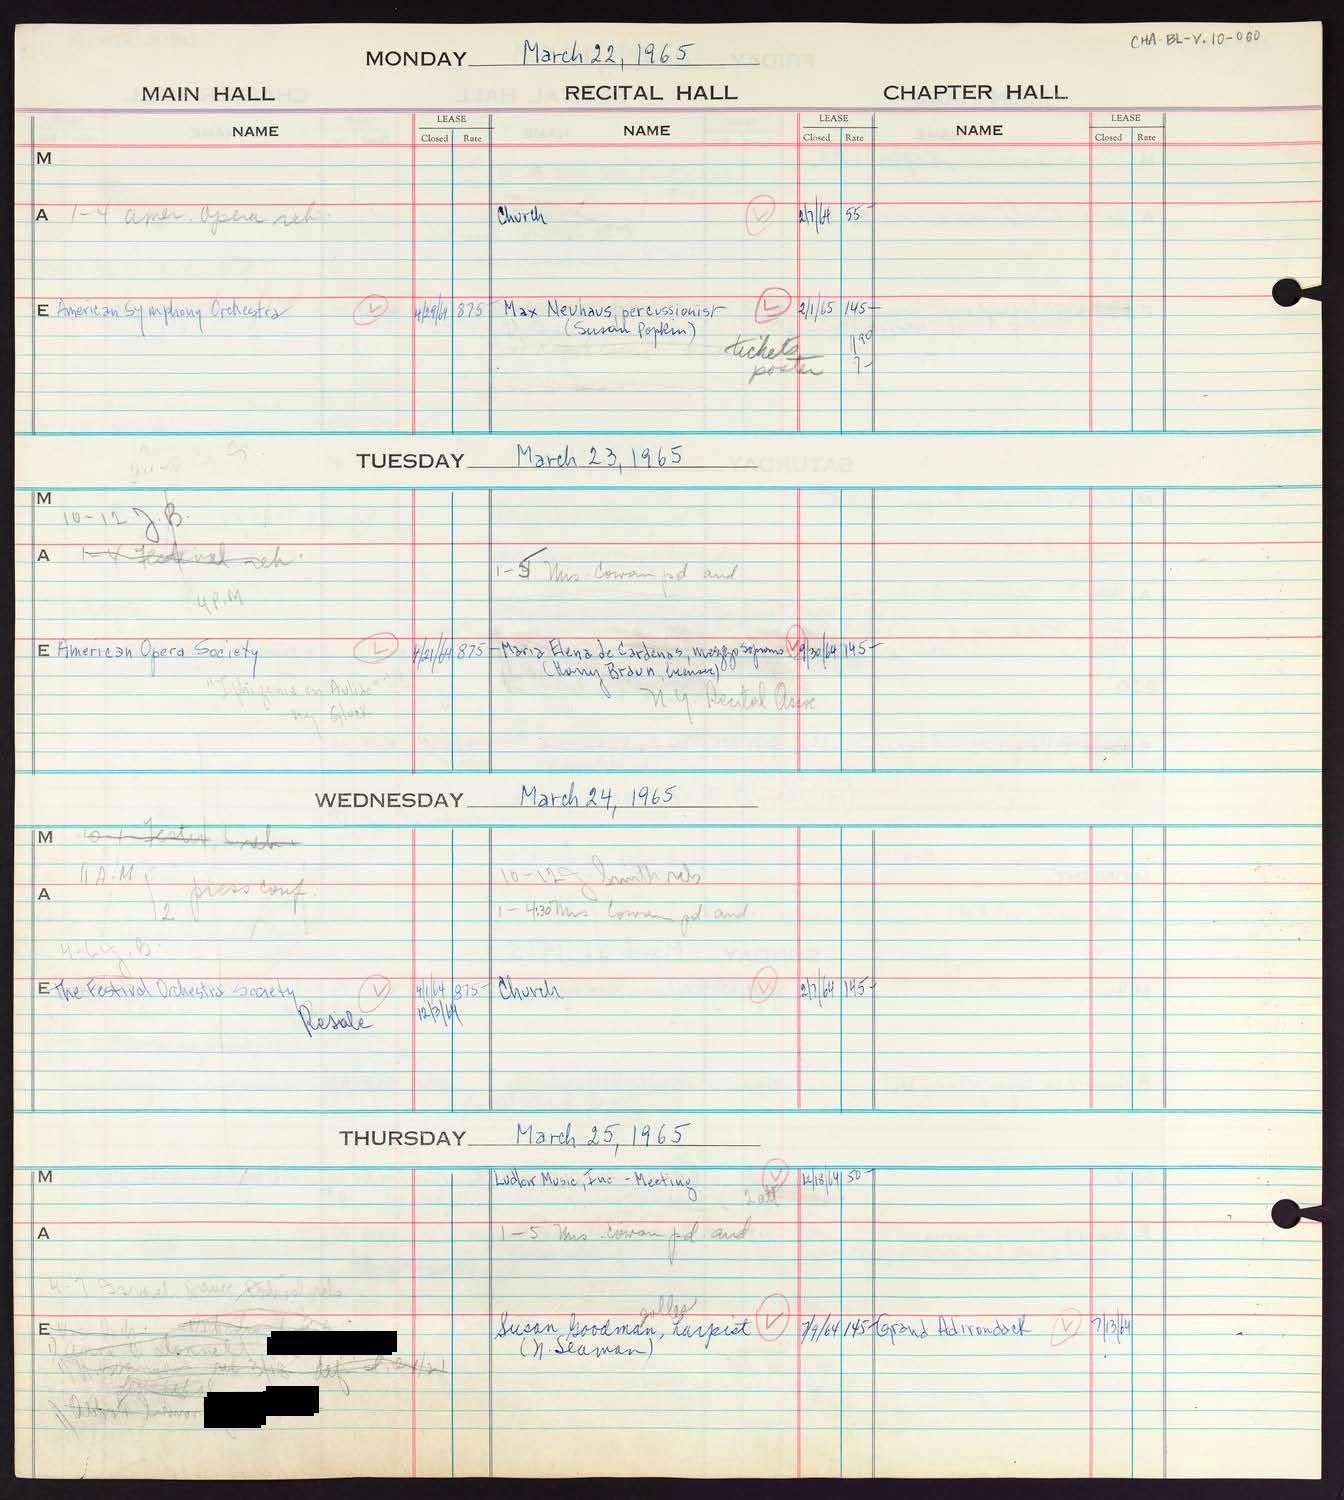 CHA-BL-V.10-060
MONDAY March 22, 1965
MAIN HALL RECITAL HALL CHAPTER HALL
NAME LEASE Closed Rate NAME LEASE Closed Rate NAME LEASE Closed Rate
M
A 1-4 amer. Opera reh. Church 2/7/64 55-
E American Symphony Orchestra 4/29/64 875- Max Neuhaus, percussionist 2/1/65 145-
(Susan Popkin)
tickets 11 90
poster 7-
TUESDAY March 23, 1965
M
10-12 J.B.
A 1-4 Festival reh.
1-5 Mrs. Cowan pd and
4 P.M
E American Opera Society 4/21/64 875- Maria Elena de Cardenas, mezzo soprano 9/30/64 145-
(Harry Braun, )
"Iphigenie en Aulide" N.Y. Recital Assoc
Gluck
WEDNESDAY March 24, 1965
M 10-1 Festival reh.
11 A.M 10-12 Smith reh
A 2 press conf.
1-4:30 Mrs. Cowan pd and
4-6 J.B.
E The Festival Orchestra Society 4/1/64 875- Church 2/7/64 145-
Resale 12/3/64
THURSDAY March 25, 1965
M Ludlow Music, Inc - Meeting 12/18/64 50-
2 att
A 1-5 Mrs. Cowan pd and
4-7 Dance Festival reh
E Susan Goodman, harpist 7/9/64 145- Grand Adirondack 7/13/64
(N. Seaman)